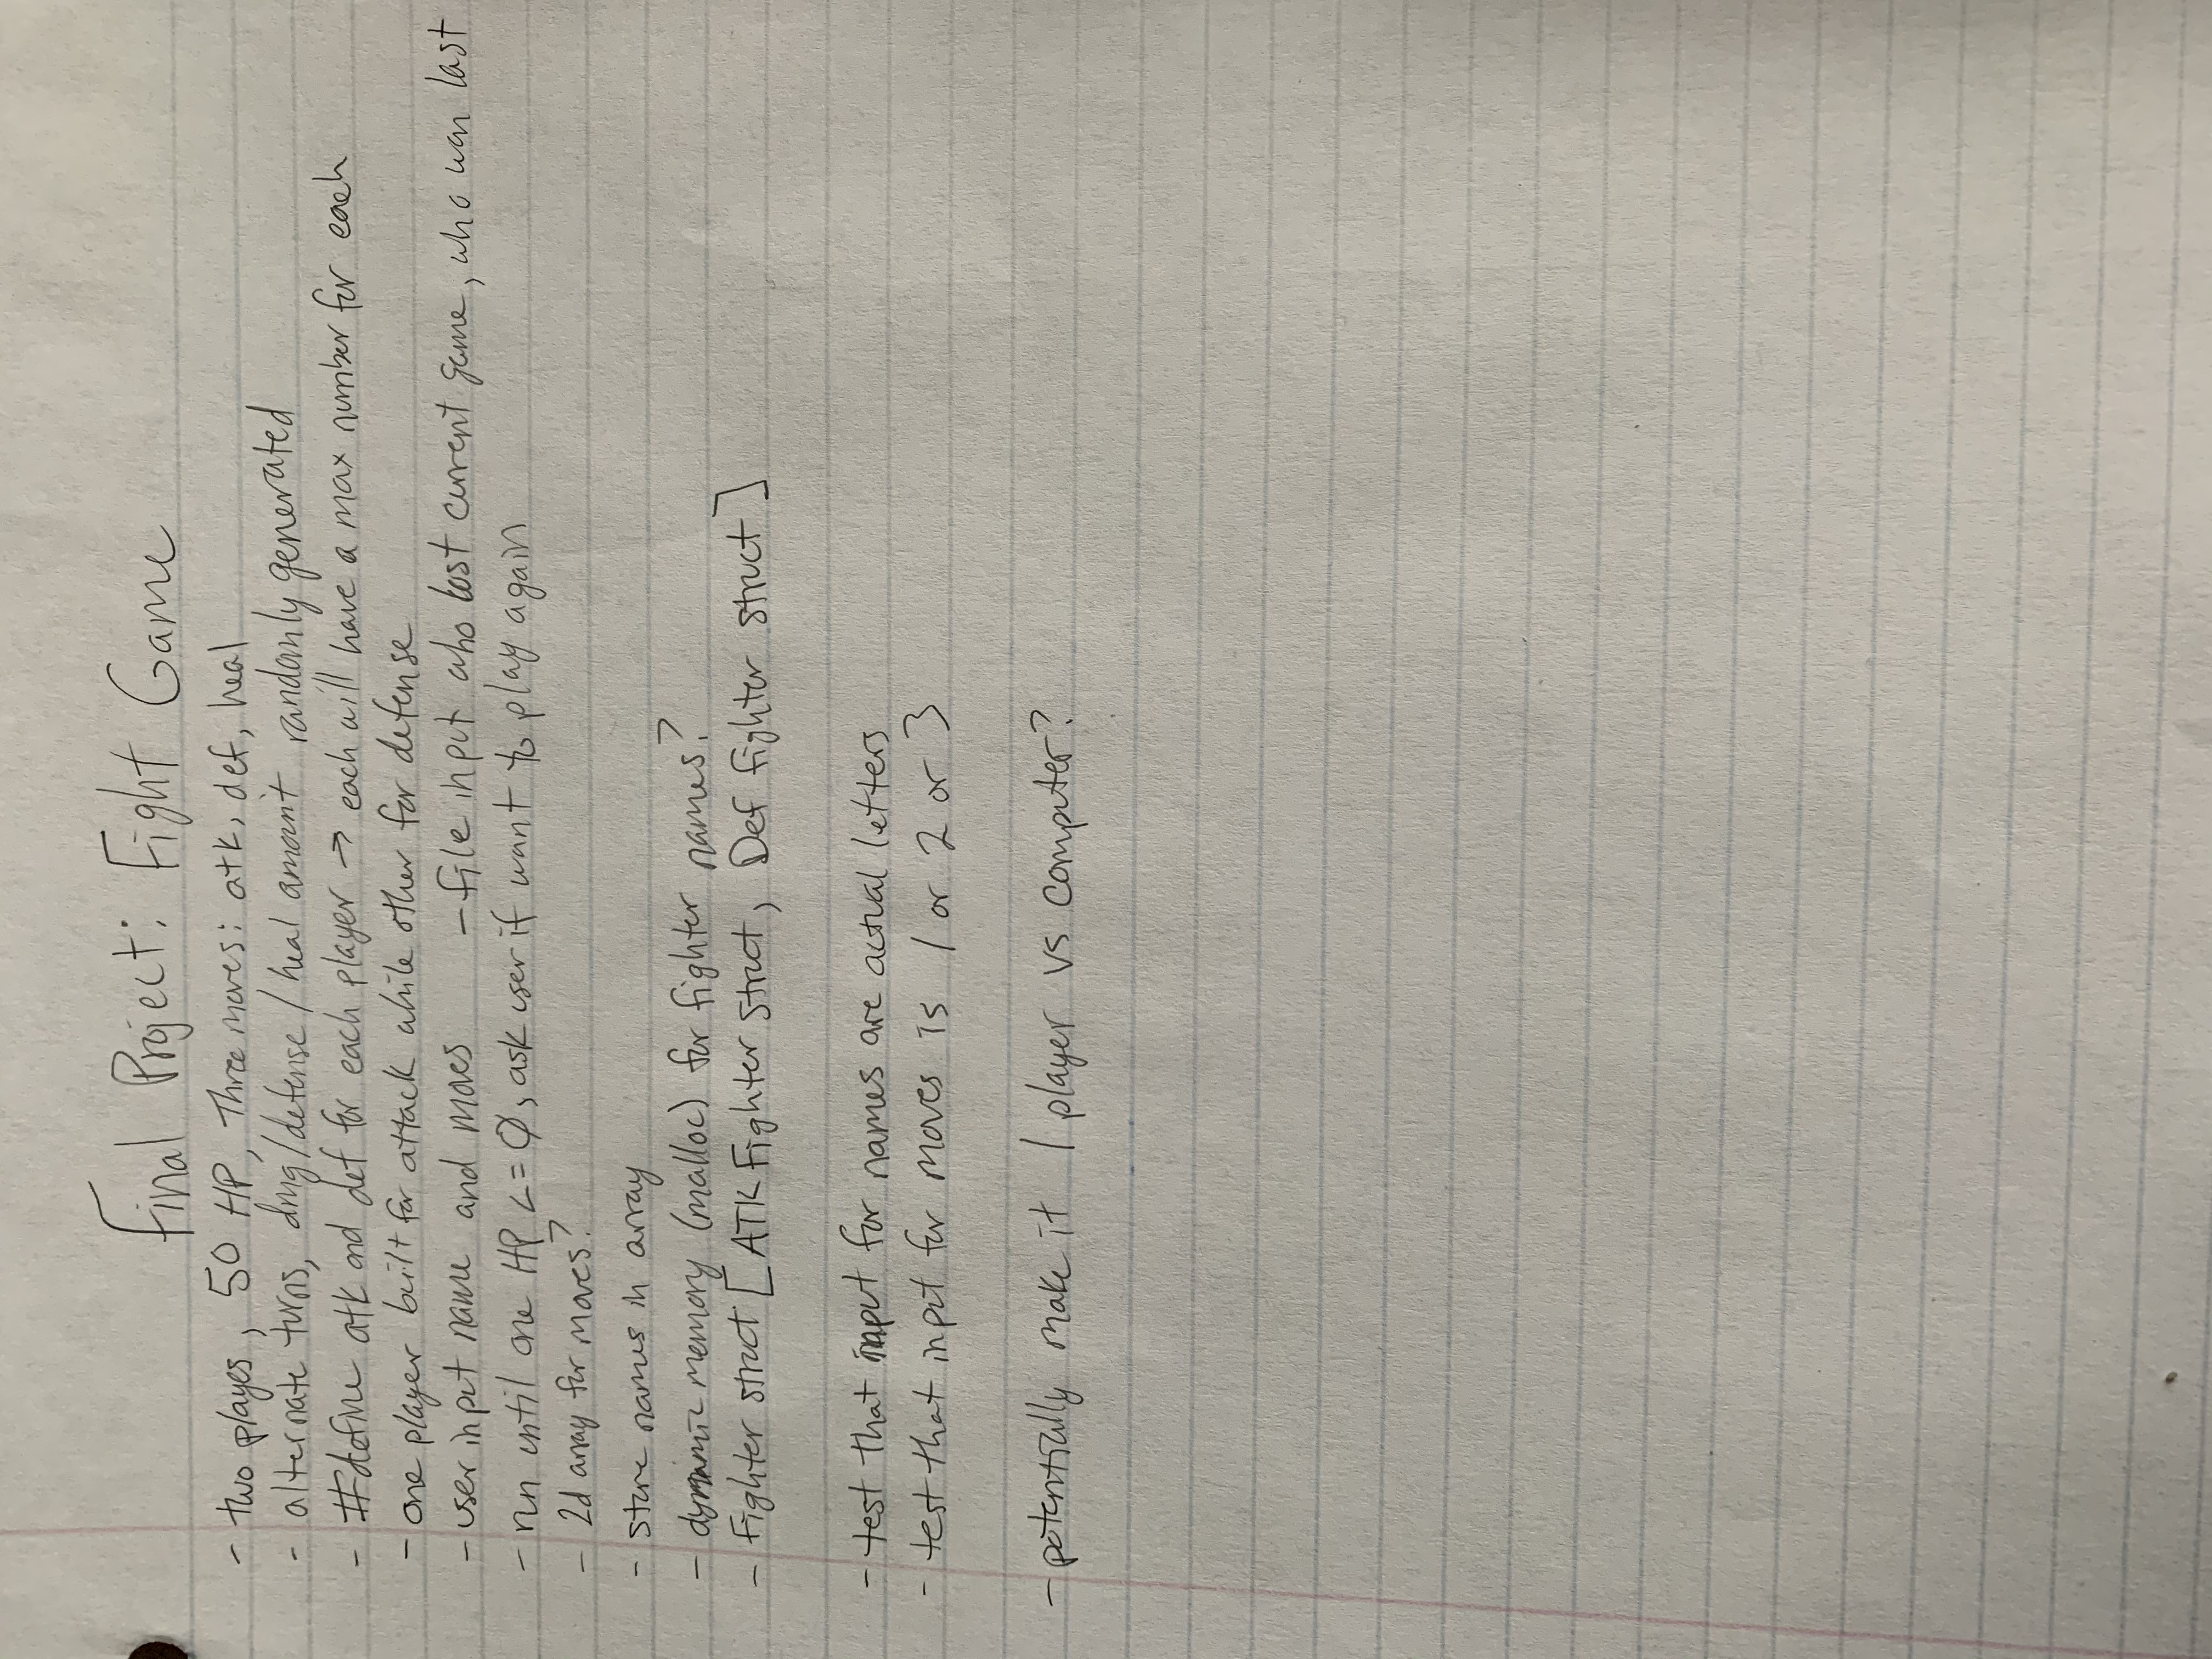 Final Project: Fight Game
- two playes, 50 HP, Three moves: atk, def, heal
- alternate turns, dmg/defense/heal amount randomly generated
- #define atk and def for each player → each will have a max number for each
- one player built for attack while other for defense
- user input name and moves - file input who lost current game, who won last
- run until one HP <= 0, ask user if want to play again
- 2d array for moves?
- store names in array
- dynamic memory (malloc) for fighter names?
- Fighter struct [ATK Fighter Struct, Def fighter struct]
- test that input for names are actual letters
- test that input for moves is 1 or 2 or 3
- potentially make it 1 player vs computer?